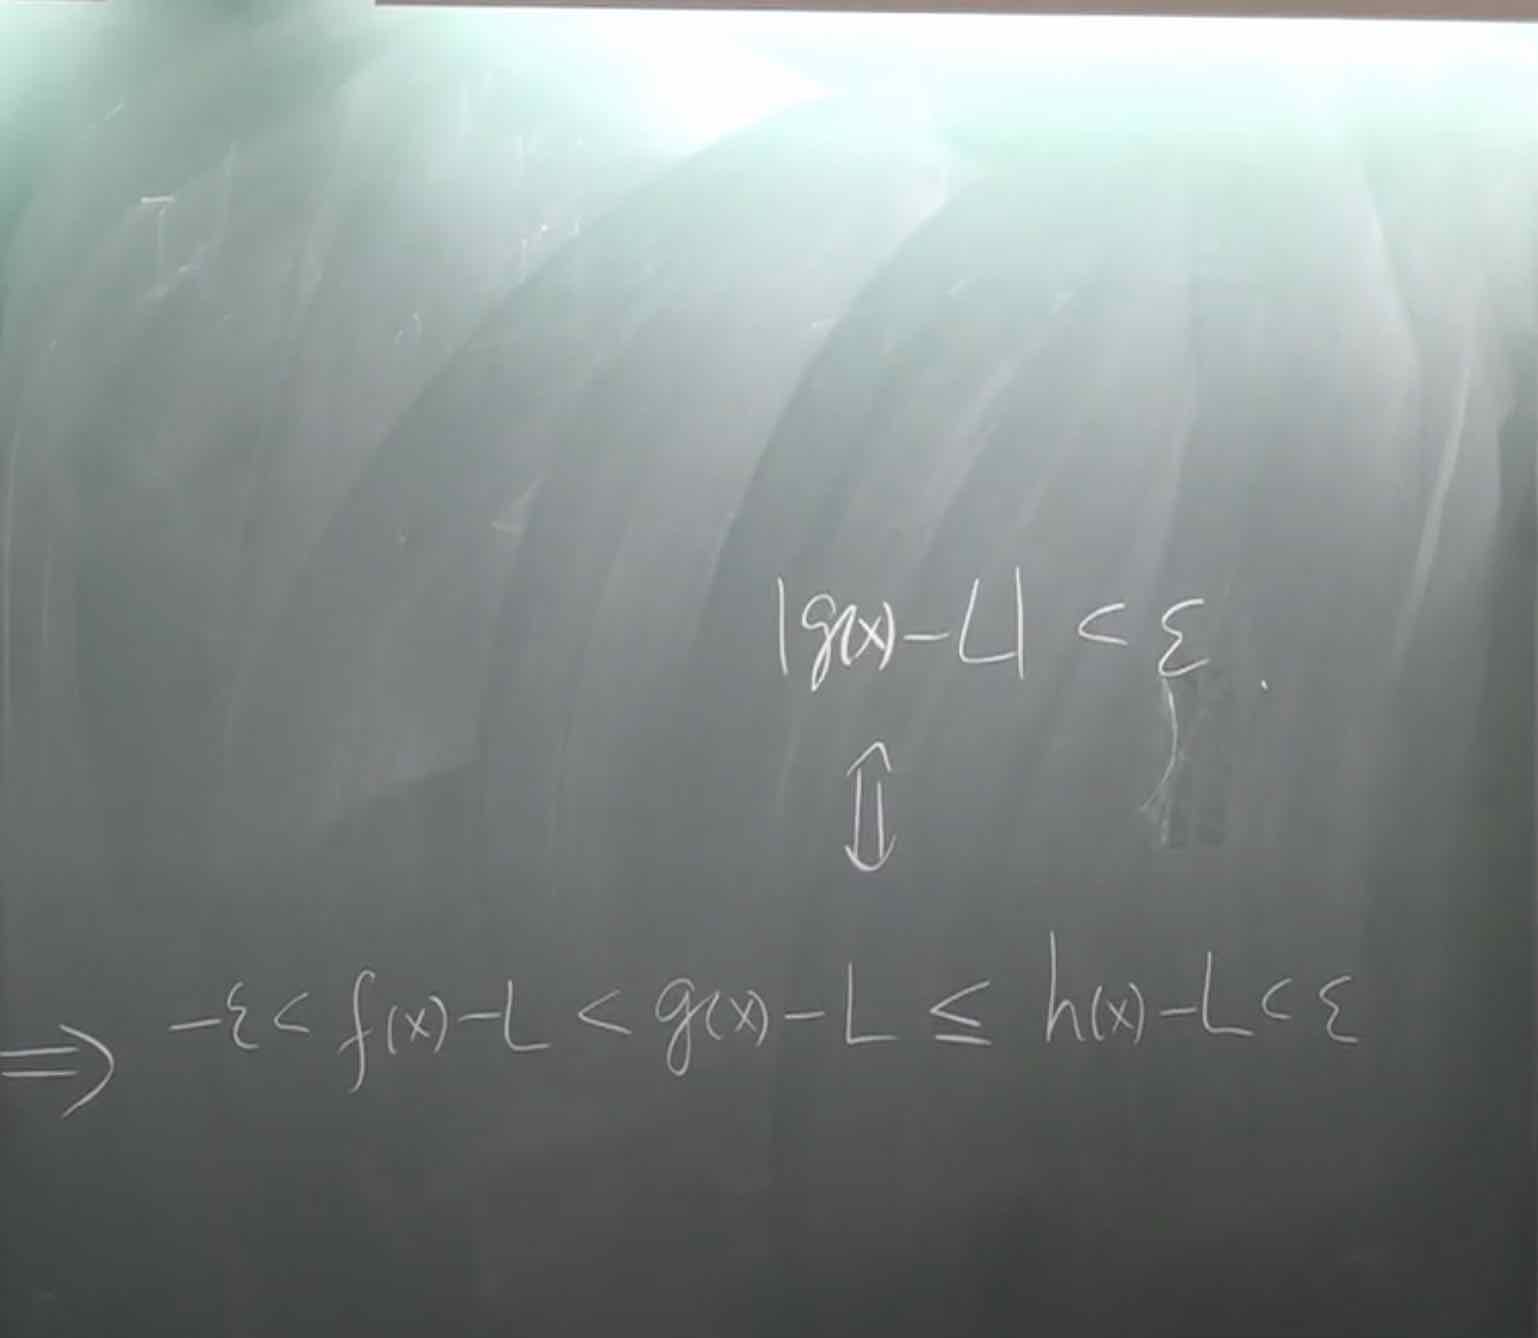 |g(x)-L| < ε.
⇕
⇒ -ε < f(x)-L < g(x)-L ≤ h(x)-L < ε